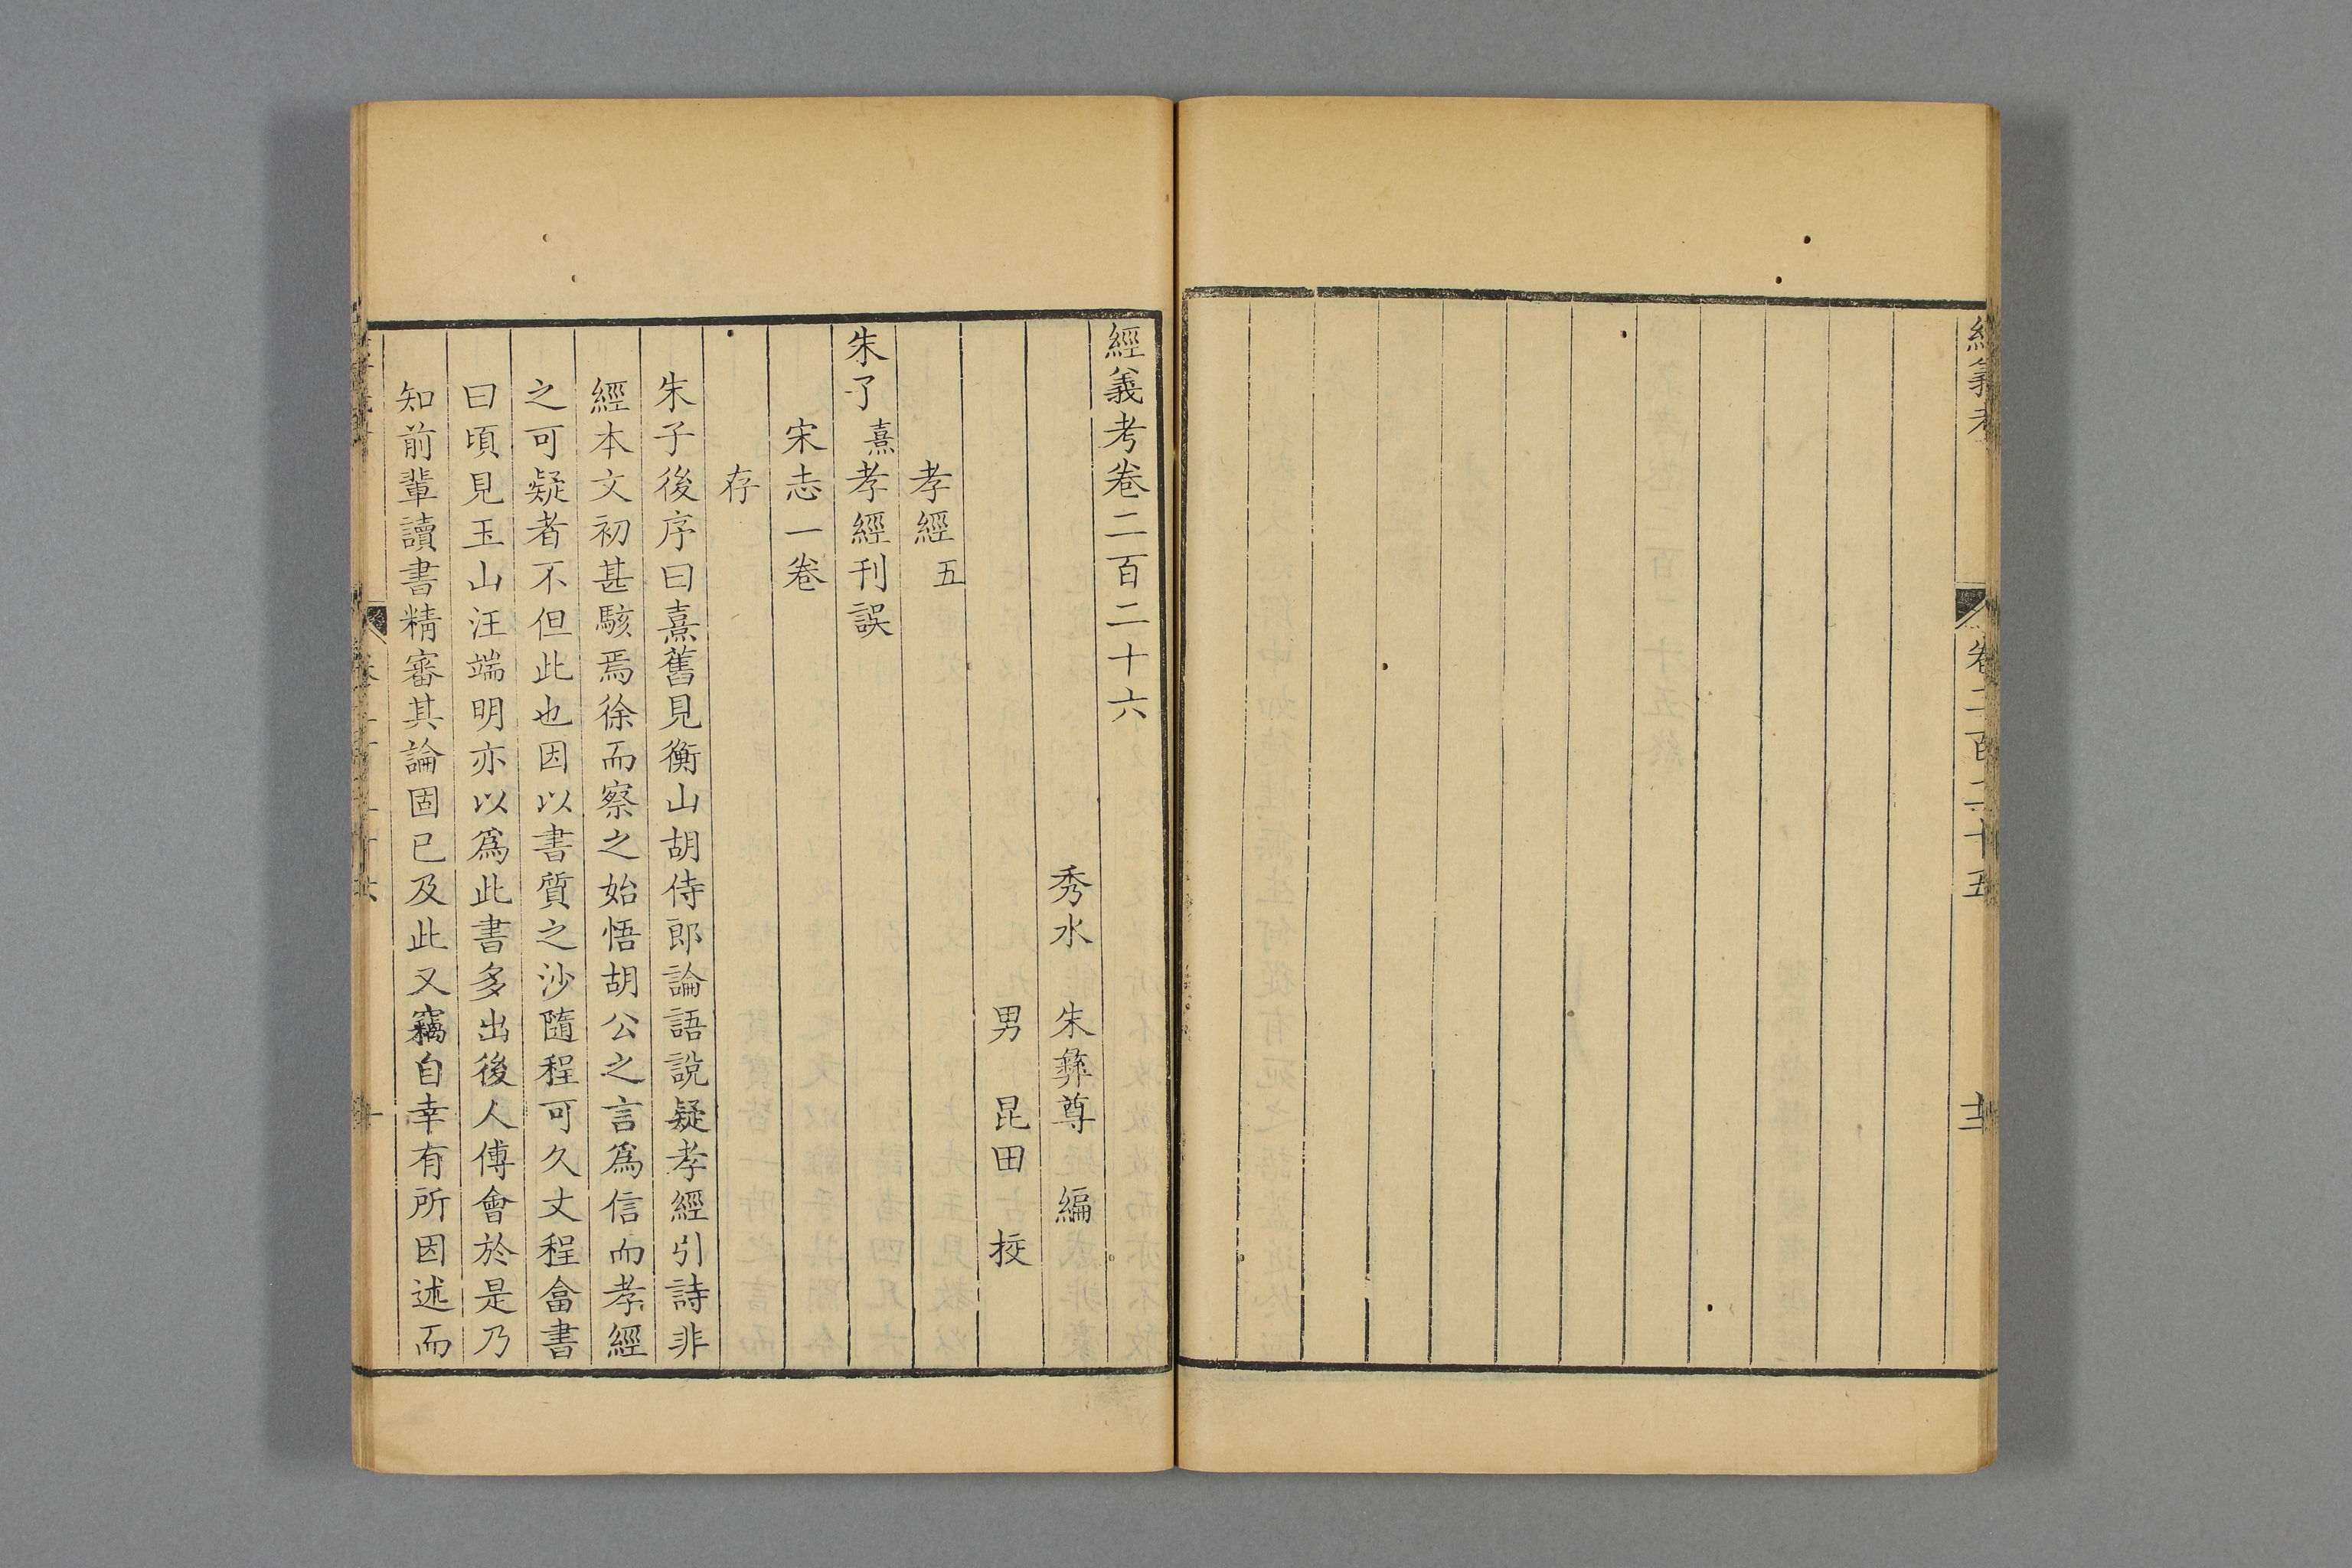 經義考
卷二百二十五
經義考卷二百二十六
秀水　朱彝尊　編
男　昆田　挍
孝經五
朱子熹孝經刊誤
宋志一卷
存
朱子後序曰熹舊見衡山胡侍郎論語說疑孝經引詩非
經本文初甚駭焉徐而察之始悟胡公之言爲信而孝經
之可疑者不但此也因以書質之沙隨程可久丈程畣書
曰頃見玉山汪端明亦以爲此書多出後人傅會於是乃
知前輩讀書精審其論固已及此又竊自幸有所因述而